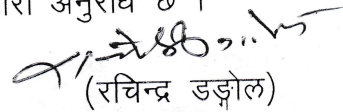 अनुरोध छ ।
(रचिन्द्र डङ्गोल)